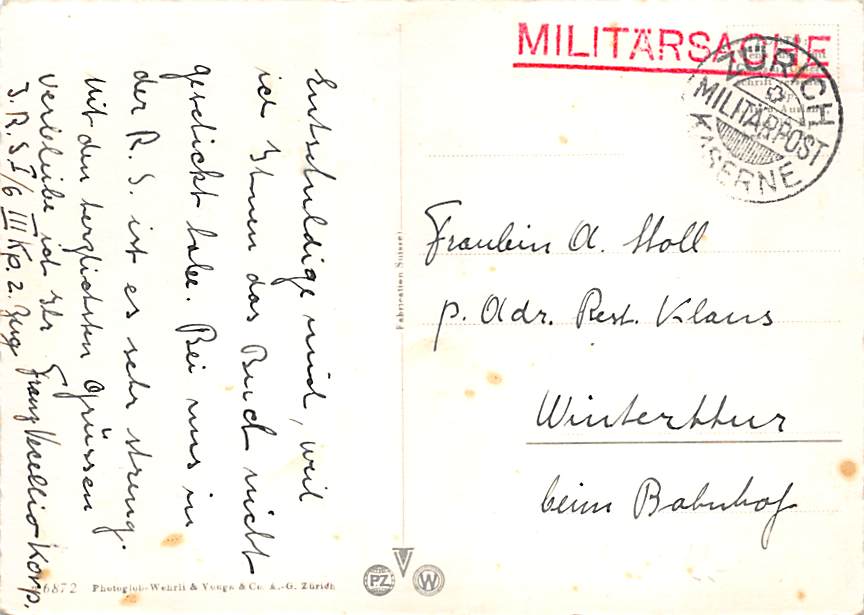 MILITÄRSACHE
ZÜRICH
MILITÄRPOST
KASERNE
Entschuldige mich, weil
ich Ihnen das Buch nicht
geschickt habe. Bei uns in
der R. S. ist es sehr streng.
Mit den herzlichsten Grüssen
verbleibe ich Ihr Franz Korp.
J. R. S. I/6 III Kp. 2. Zug
Fräulein A. Stoll
p. Adr. Rest. Klaus
Winterthur
beim Bahnhof
Fabrication Suisse
6872 Photoglob-Wehrli & Vouga & Co. A.-G. Zürich
PZ
W